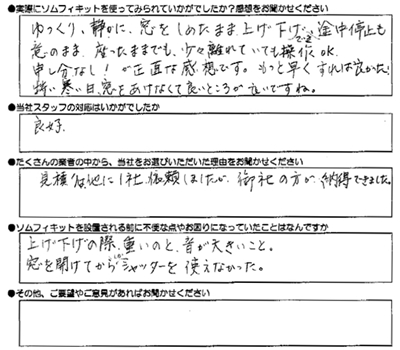 ●実際にソムフィキットを使ってみられていかがでしたか？感想をお聞かせください
ゆっくり、静かに、窓をしめたまま上げ下げでき、途中停止も
意のまま、座ったままでも、少々離れていても操作OK.
申し分なし！が正直な感想です。もっと早くすれば良かった。
強い寒い日、窓をあけなくて良いところが良いですね。
●当社スタッフの対応はいかがでしたか
良好.
●たくさんの業者の中から、当社をお選びいただいた理由をお聞かせください
見積は他に1社依頼しましたが、御社の方が、納得できました。
●ソムフィキットを設置される前に不便な点やお困りになっていたことはなんですか
上げ下げの際、重いのと、音が大きいこと。
窓を開けてからシャッターを使えなかった。
●その他、ご要望やご意見があればお聞かせください